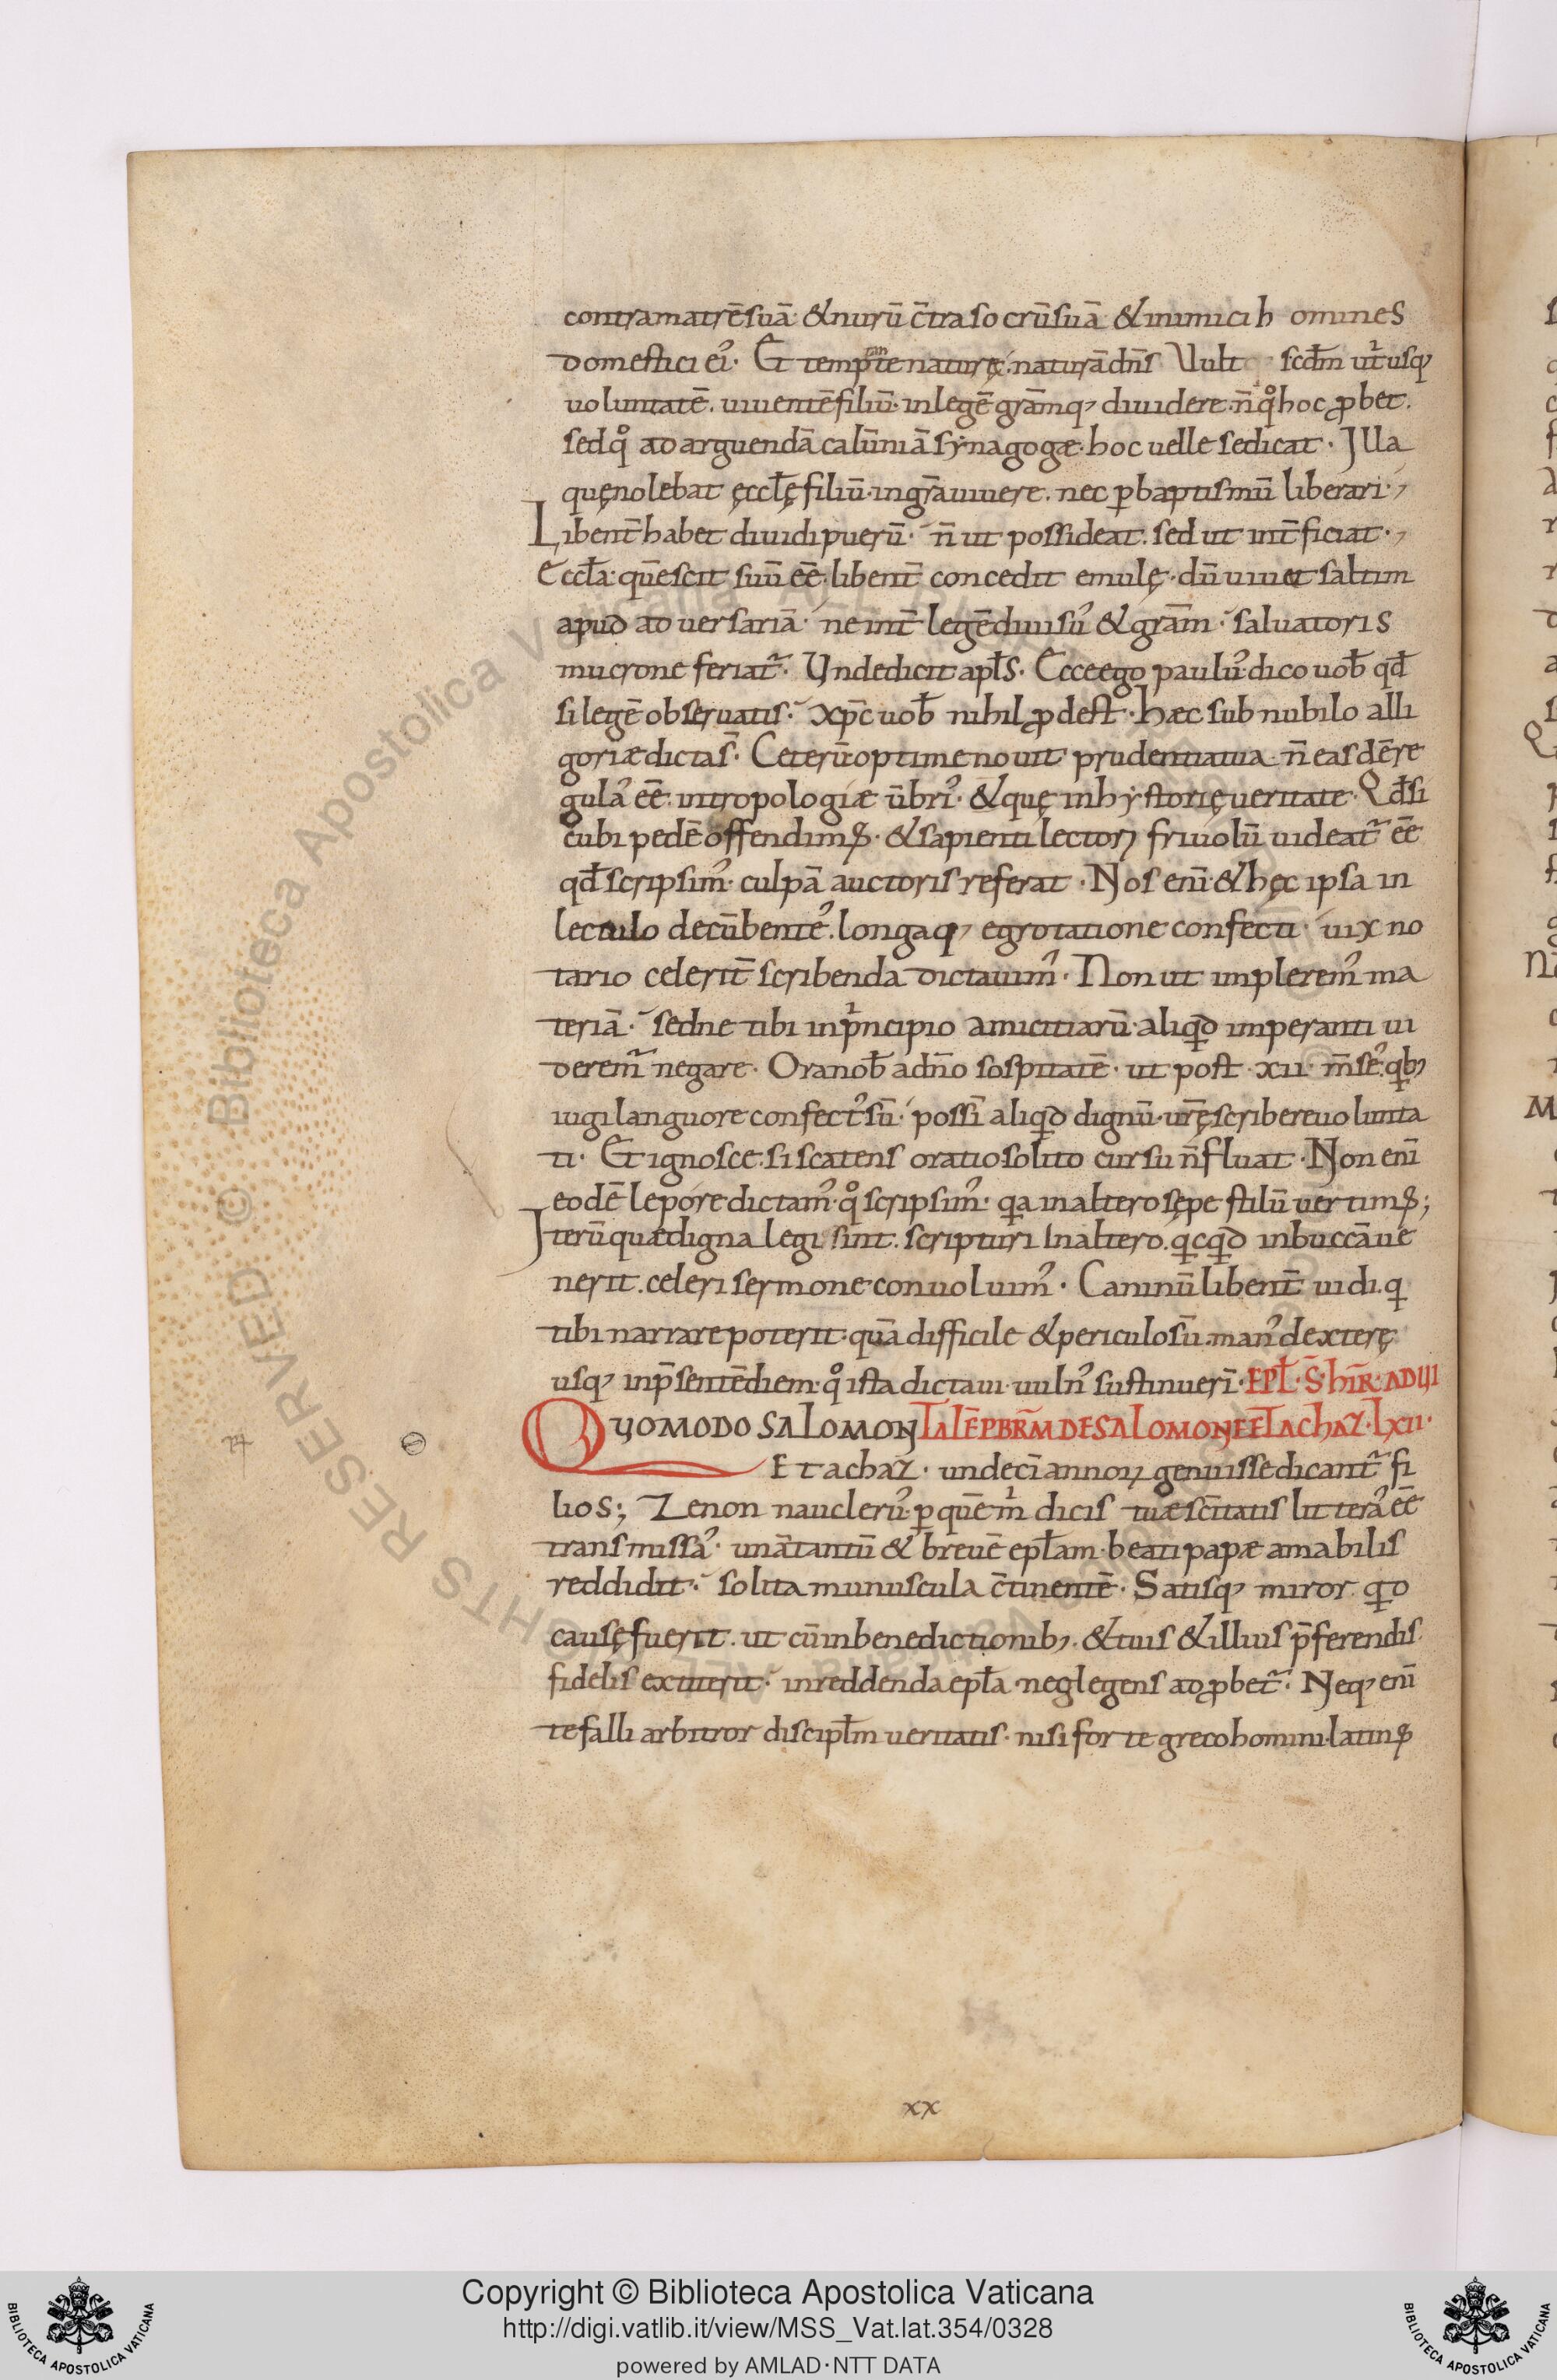 contra matrē suā· & nurū c̄tra socrū suā· & inimici homines
domestici ei᾽· Et temp̄te naturę· naturā dn̄s Vult scd̄m ut̄usq;
uoluntatē. uiuentē filiū· in legē gr̄amq; diuidere· n̄ qͦ hoc ꝓbet.
sed qͦ ad arguendā calūniā sẏnagogæ· hoc uelle se dicat· Illa
quę nolebat ęccl̄ę filiū· in gr̄a uiuere. nec ꝑ baptismū liberari·,
Libent̄ habet diuidi puerū· n̄ ut possideat. sed ut int̄ficiat·,
Eccl̄a· quē scit suū eē· libent̄ concedit emulę· dū uiuat saltim
apud aduersariā· ne int̄ legē diuisu᾽ & gr̄am· saluatoris
mucrone feriat᷑· Unde dicit apl̄s· Ecce ego paulu᾽ dico uob̄ qd̄
si legē obseruatis· xp̄c uob̄ nihil ꝓdest· Hæc sub nubilo alli
goriæ dicta s̄· Ceterū optime nouit prudentia tua n̄ easdē re
gula᾽ eē· in tropologiæ ūbri᾽· & quę in hẏstorię ueritate· Qd̄ si
cubi pedē offendimꝰ· & sapienti lectoꝝ friuolū uideat᷑ eē
qd̄ scripsim᾽· culpā auctoris referat· Nos eni· & hęc ipsa in
lectulo decūbente᾽. longaq; egrotatione confecti· uix no
tario celerit̄ scribenda dictauim᾽· Non ut implerem᾽ ma
teriā· sed ne tibi in pͥncipio amicitiarū· aliqͥd imperanti ui
derem᷑ negare· Ora nob̄ a dn̄o sospitatē· ut post xii· m̄se᾽· qͥb;
iugi languore confect᾽ sū· possī aliqͥd dignū· ur̄ę scribere uolunta
ti· Et ignosce· si scatens oratio solito cursu n̄ fluat· Non enī
eodē lepóre dictam᾽· qͦ scripsim᾽· qͥa in altero sępe stilū uertimꝰ;
Iterū quæ digna legi sint. scripturi In altero. qͥcqͥd in buccā ue
nerit. celeri sermone conuoluim᾽· Caninū libent̄ uidi. qͥ
tibi narrare poterit· quā difficile & periculosū· man᾽ dexterę
usq; in p̄sentē diem· qͦ ista dictaui· uuln᾽ sustinuerī· EPL̄· S̄· HIR̄· AD UI
QUOMODO SALOMON TALĒ PBR̄M DE SALOMONE ET ACHAZ· LXII·
Et achaz· undecī annoꝝ genuisse dicant᷑ fi
lios; Zenon naucleru᾽· ꝑ quē mͥ dicis tuæ sc̄itatis littera᾽ eē
transmissa᾽· unā tantū & breuē epl̄am· beati papæ amabilis
reddidit· solita munuscula c̄tinentē· Satisq; miror qͥd
causę fuerit. ut cū in benedictionib;· & tuis & illius p̄ferendis
fidelis extiterit· in reddenda epl̄a neglegens adꝓbet᷑· Neq; enī
te falli arbitror discipl̄m ueritatis· nisi forte greco homini· latinꝰ
xx
Copyright © Biblioteca Apostolica Vaticana
http://digi.vatlib.it/view/MSS_Vat.lat.354/0328
powered by AMLAD·NTT DATA